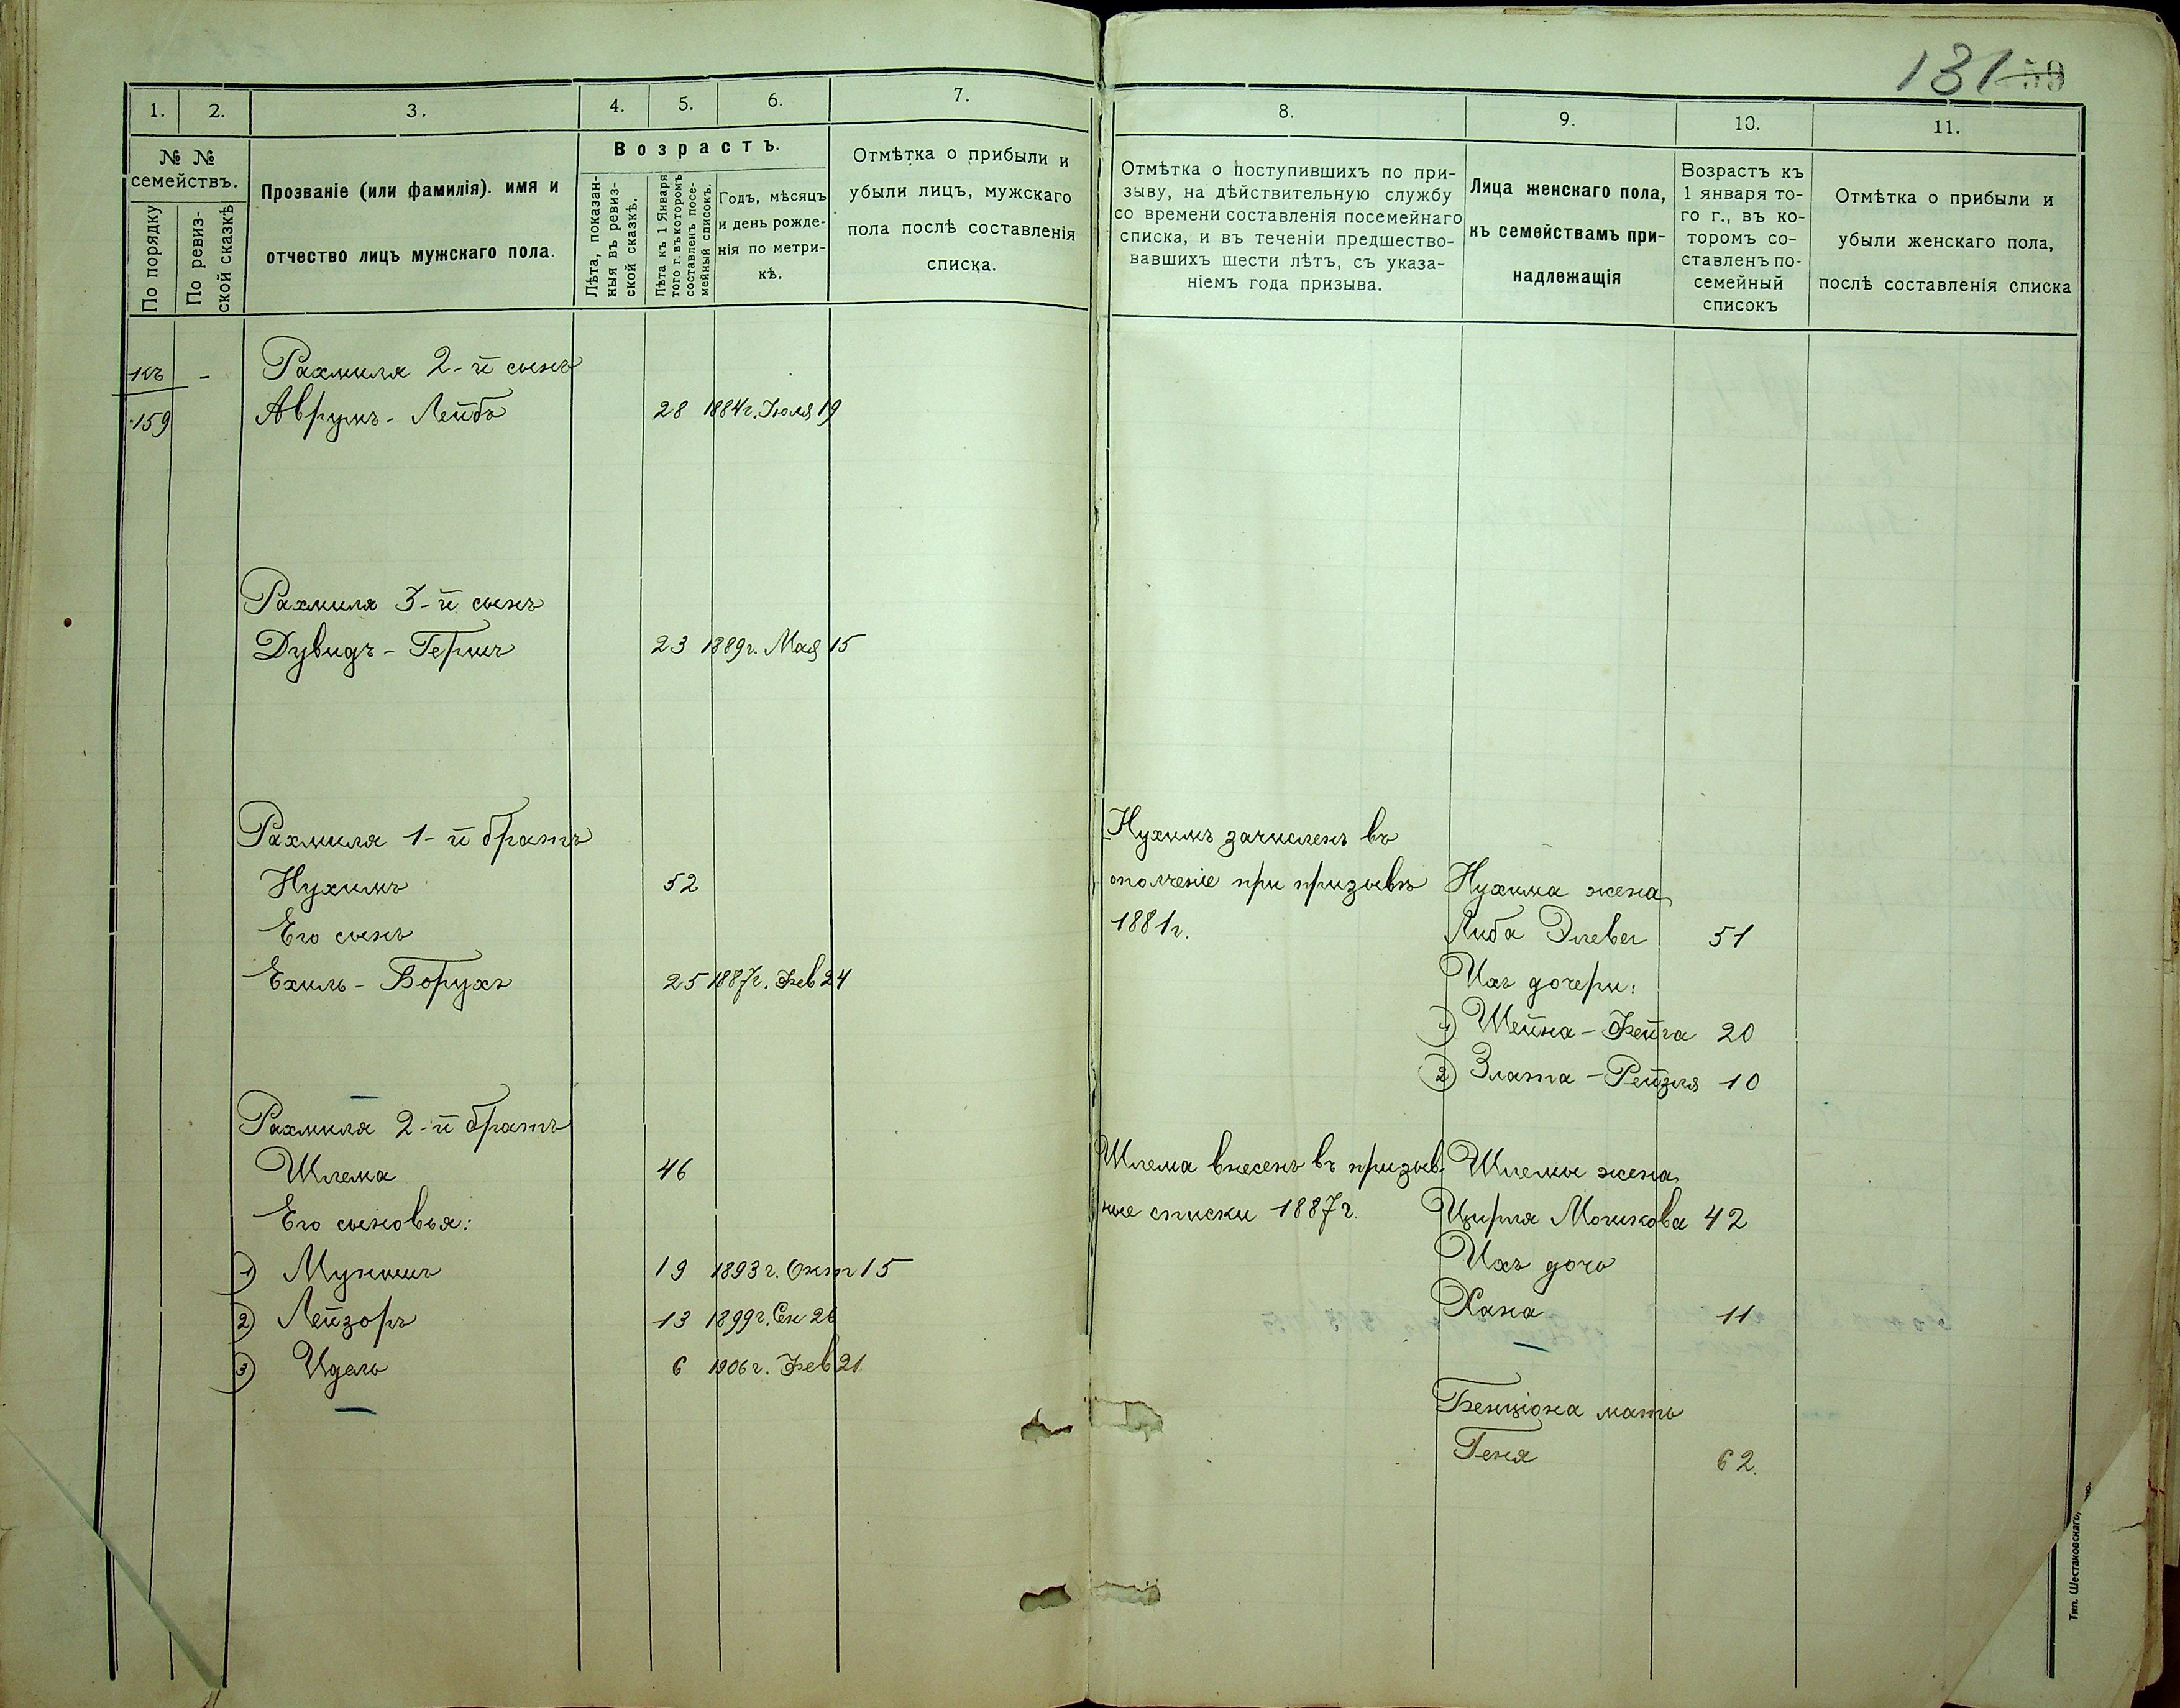 131 59
1. 2. 3. 4. 5. 6. 7.
№ №
семействъ.
По порядку
По ревиз-
ской сказкѣ
Прозваніе (или фамилія). имя и
отчество лицъ мужскаго пола.
Возрастъ.
Лѣта, показан-
ныя въ ревиз-
ской сказкѣ.
Лѣта къ 1 Января
того г. въ которомъ
составленъ посе-
мейный списокъ.
Годъ, мѣсяцъ
и день рожде-
нія по метри-
кѣ.
Отмѣтка о прибыли и
убыли лицъ, мужскаго
пола послѣ составленія
списка.
къ - Рахмиля 2-й сынъ
159 Аврумъ - Лейбъ 28 1884г. Іюля 19
Рахмиля 3-й сынъ
Дувидъ - Гершъ 23 1889г. Мая 15
Рахмиля 1-й братъ
Нухимъ 52
Его сынъ
Ехиль - Борухъ 25 1887г. Фев 24
Рахмиля 2-й братъ
Шлема 46
Его сыновья:
1) 19 1893г. Окт 15
2) Лейзоръ 13 1899г. Сен 26
3) Идель 6 1906г. Фев 21
8. 9. 10. 11.
Отмѣтка о поступившихъ по при-
зыву, на дѣйствительную службу
со времени составленія посемейнаго
списка, и въ теченіи предшество-
вавшихъ шести лѣтъ, съ указа-
ніемъ года призыва.
Лица женскаго пола,
къ семействамъ при-
надлежащія
Возрастъ къ
1 января то-
го г., въ ко-
торомъ со-
ставленъ по-
семейный
списокъ
Отмѣтка о прибыли и
убыли женскаго пола,
послѣ составленія списка
Нухимъ зачисленъ въ
ополченіе при призывѣ Нухима жена
1881г. Либа 51
Ихъ дочери:
1) Шейна - Фейга 20
2) Злата - Рейзля 10
Шлема внесенъ въ призыв- Шлемы жена
ные списки 1887г. Цирля Мошкова 42
Ихъ дочь
Хана 11
Бенціона мать
Геня 62.
Тип. Шестаковскаго,